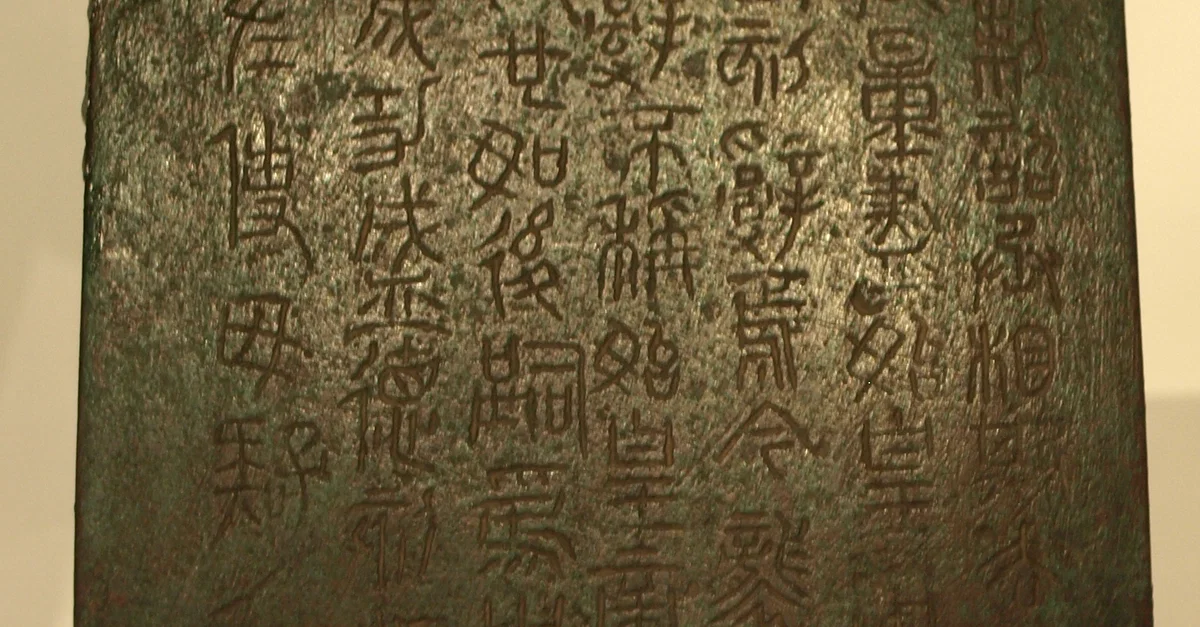 制詔丞相斯去
量盡始皇帝
刻辭焉今襲
辭不稱始皇帝
也如後嗣為之
成功盛德刻
左使毋疑